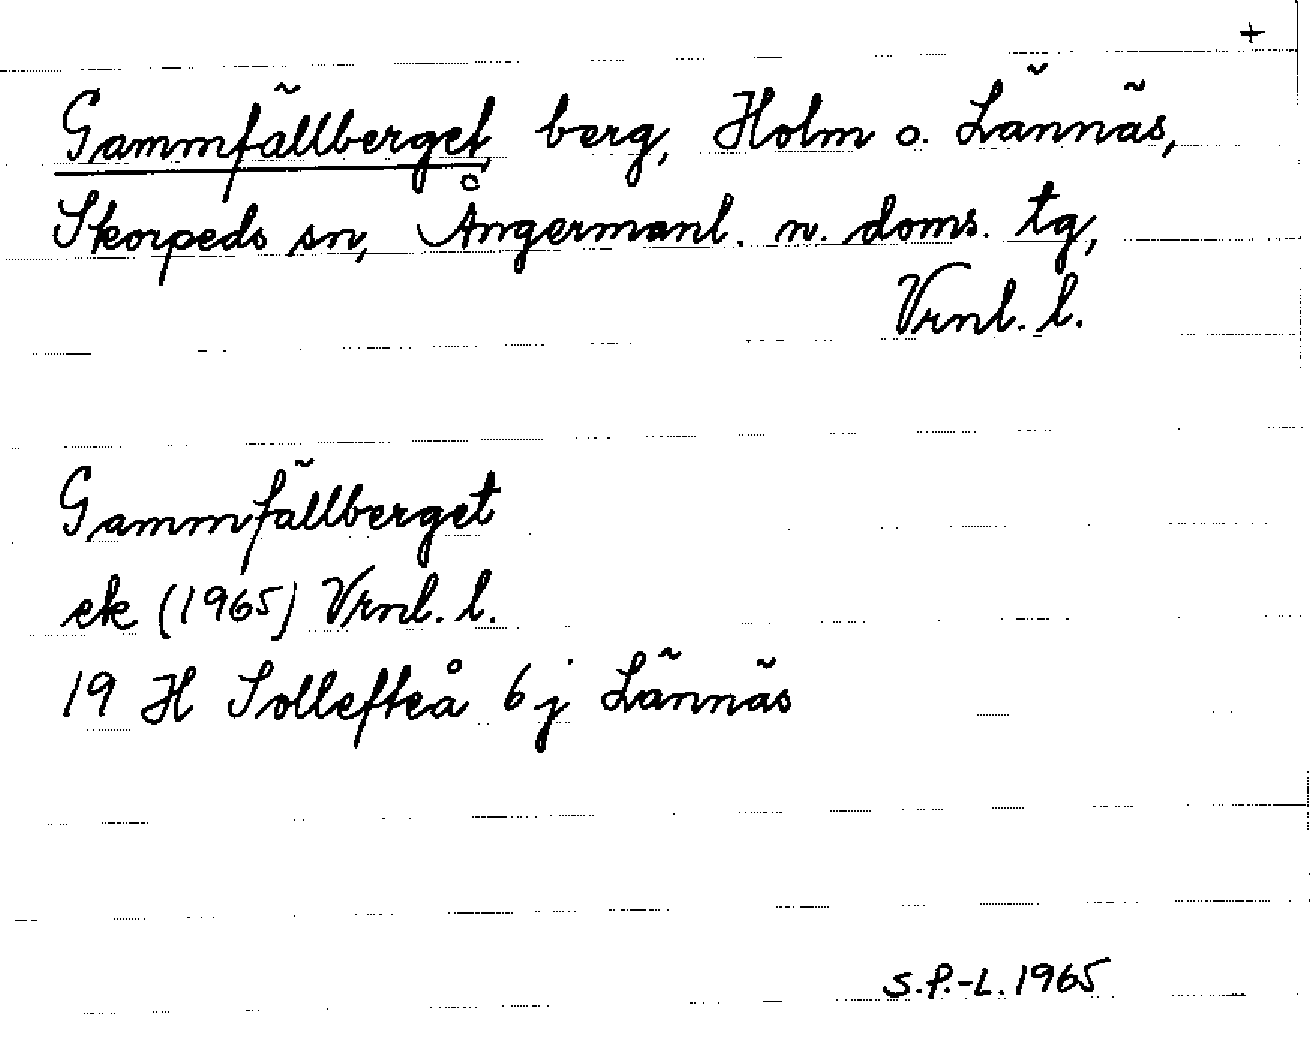 +
Gammfällberget, berg, Holm o. Lännäs,
Skorpeds sn, Ångermanl. n. doms. tg,
Vrnl. l.
Gammfällberget
ek (1965) Vrnl. l.
19 H Sollefteå 6 j Lännäs
S.P.-L. 1965